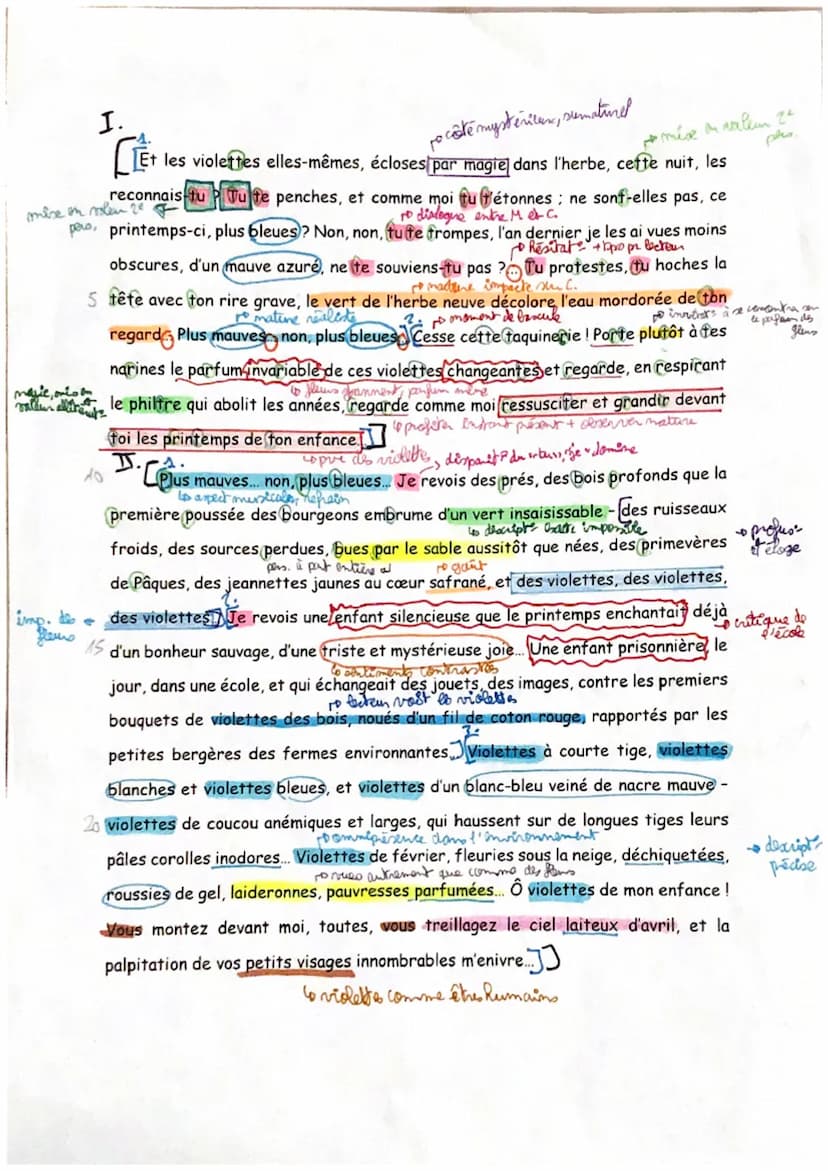 I.
côté mystérieux, surnaturel
mise en valeur 2e pers.
1.
[Et les violettes elles-mêmes, écloses par magie dans l'herbe, cette nuit, les
reconnais-tu ? Tu te penches, et comme moi tu t'étonnes ; ne sont-elles pas, ce
mise en valeur 2e pers.
dialogue entre M et C.
printemps-ci, plus bleues ? Non, non, tu te trompes, l'an dernier je les ai vues moins
obscures, d'un mauve azuré, ne te souviens-tu pas ?... Tu protestes, tu hoches la
5 tête avec ton rire grave, le vert de l'herbe neuve décolore l'eau mordorée de ton
nature réaliste
2.
moment de bascule
regard... Plus mauves... non, plus bleues... Cesse cette taquinerie ! Porte plutôt à tes
narines le parfum invariable de ces violettes changeantes et regarde, en respirant
magie, mis en valeur
le philtre qui abolit les années, regarde comme moi ressusciter et grandir devant
profiter instant présent + observer nature
toi les printemps de ton enfance.]
II.
1.
10 [Plus mauves... non, plus bleues... Je revois des prés, des bois profonds que la
aspect musical, refrain
première poussée des bourgeons embrume d'un vert insaisissable - des ruisseaux
froids, des sources perdues, bues par le sable aussitôt que nées, des primevères
goût
de Pâques, des jeannettes jaunes au cœur safrané, et des violettes, des violettes,
2.
imp. des fleurs
des violettes] Je revois une enfant silencieuse que le printemps enchantait déjà
critique de l'école
15 d'un bonheur sauvage, d'une triste et mystérieuse joie... Une enfant prisonnière, le
sentiments contrastés
jour, dans une école, et qui échangeait des jouets, des images, contre les premiers
lecteur voit les violettes
bouquets de violettes des bois, noués d'un fil de coton rouge, rapportés par les
3.
petites bergères des fermes environnantes...] [Violettes à courte tige, violettes
blanches et violettes bleues, et violettes d'un blanc-bleu veiné de nacre mauve -
20 violettes de coucou anémiques et larges, qui haussent sur de longues tiges leurs
omniprésence dans l'environnement
pâles corolles inodores... Violettes de février, fleuries sous la neige, déchiquetées,
descript° précise
vues autrement que comme des fleurs
roussies de gel, laideronnes, pauvresses parfumées... Ô violettes de mon enfance !
Vous montez devant moi, toutes, vous treillagez le ciel laiteux d'avril, et la
palpitation de vos petits visages innombrables m'enivre...]]
violettes comme êtres humains